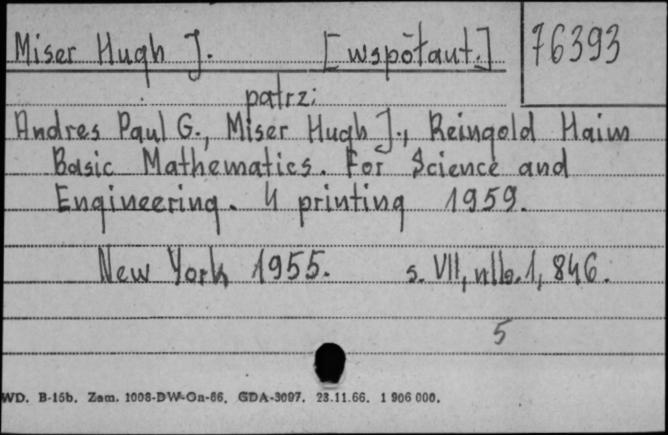 Miser Hugh J. [współaut.] 76393
patrz:
Andres Paul G., Miser Hugh J., Reingold Haim
Basic Mathematics. For Science and
Engineering. 4 printing 1959.
New York 1955. s. VII, nlb. 1, 846.
5
WD. B-15b. Zam. 1008-DW-Gn-66. GDA-3097. 23.11.66. 1 906 000.